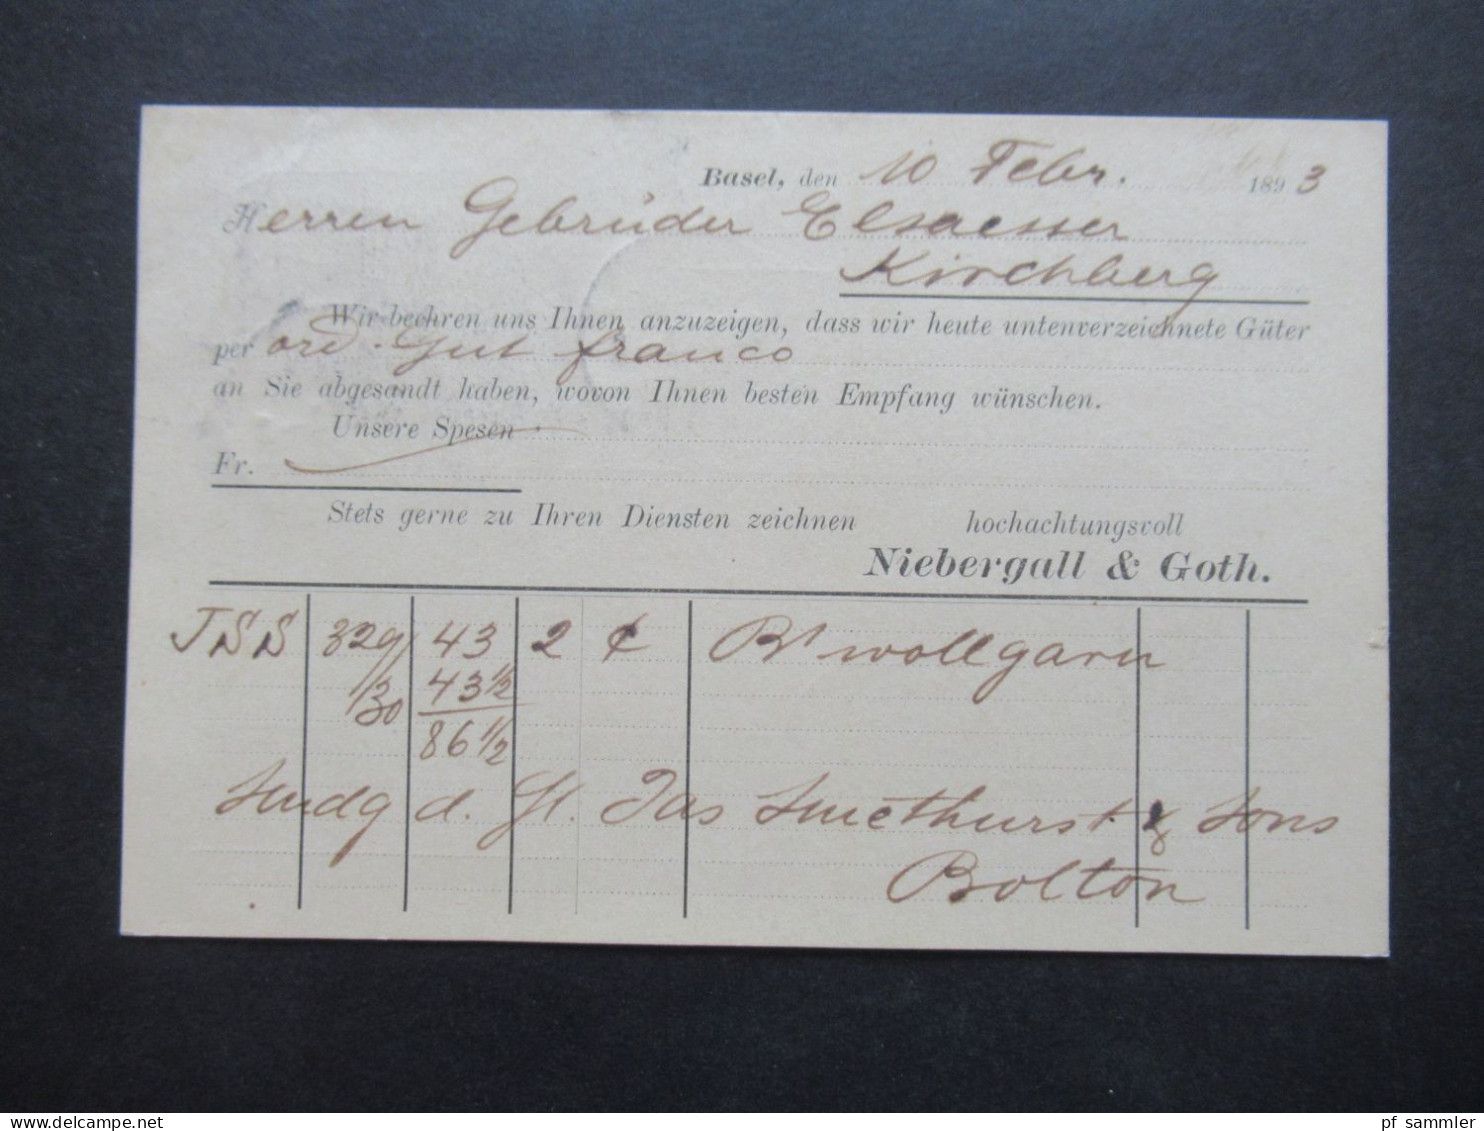 Basel, den 10 Febr. 1893
Herren Gebrüder Elsaesser
Kirchberg
Wir beehren uns Ihnen anzuzeigen, dass wir heute untenverzeichnete Güter
per ord. Gut franco
an Sie abgesandt haben, wovon Ihnen besten Empfang wünschen.
Unsere Spesen
Fr.
Stets gerne zu Ihren Diensten zeichnen hochachtungsvoll
Niebergall & Goth.
JSS 329/ 43 2 Bwollgarn
/30 43 1/2
86 1/2
Sendg d. Jas Smethurst & Sons
Bolton
www.delcampe.net
pf_sammler